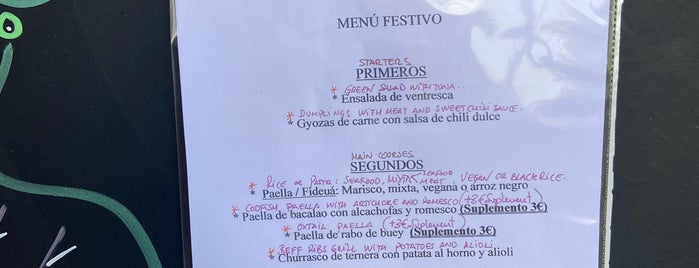 MENÚ FESTIVO
STARTERS
PRIMEROS
* GREEN SALAD WITH TUNA.
* Ensalada de ventresca
* DUMPLINGS WITH MEAT AND SWEET CHILI SAUCE.
* Gyozas de carne con salsa de chili dulce
MAIN COURSES
SEGUNDOS
* RICE OR PASTA: SEAFOOD, MIXTA SEAFOOD MEAT VEGAN OR BLACK RICE.
* Paella / Fideuá: Marisco, mixta, vegana o arroz negro
* CODFISH PAELLA WITH ARTICHOKE AND ROMESCO (+3€ Suplement)
* Paella de bacalao con alcachofas y romesco (Suplemento 3€)
* OXTAIL PAELLA (+3€ Suplement)
* Paella de rabo de buey (Suplemento 3€)
* BEFF RIBS GRILL WITH POTATOES AND ALIOLI
* Churrasco de ternera con patata al horno y alioli